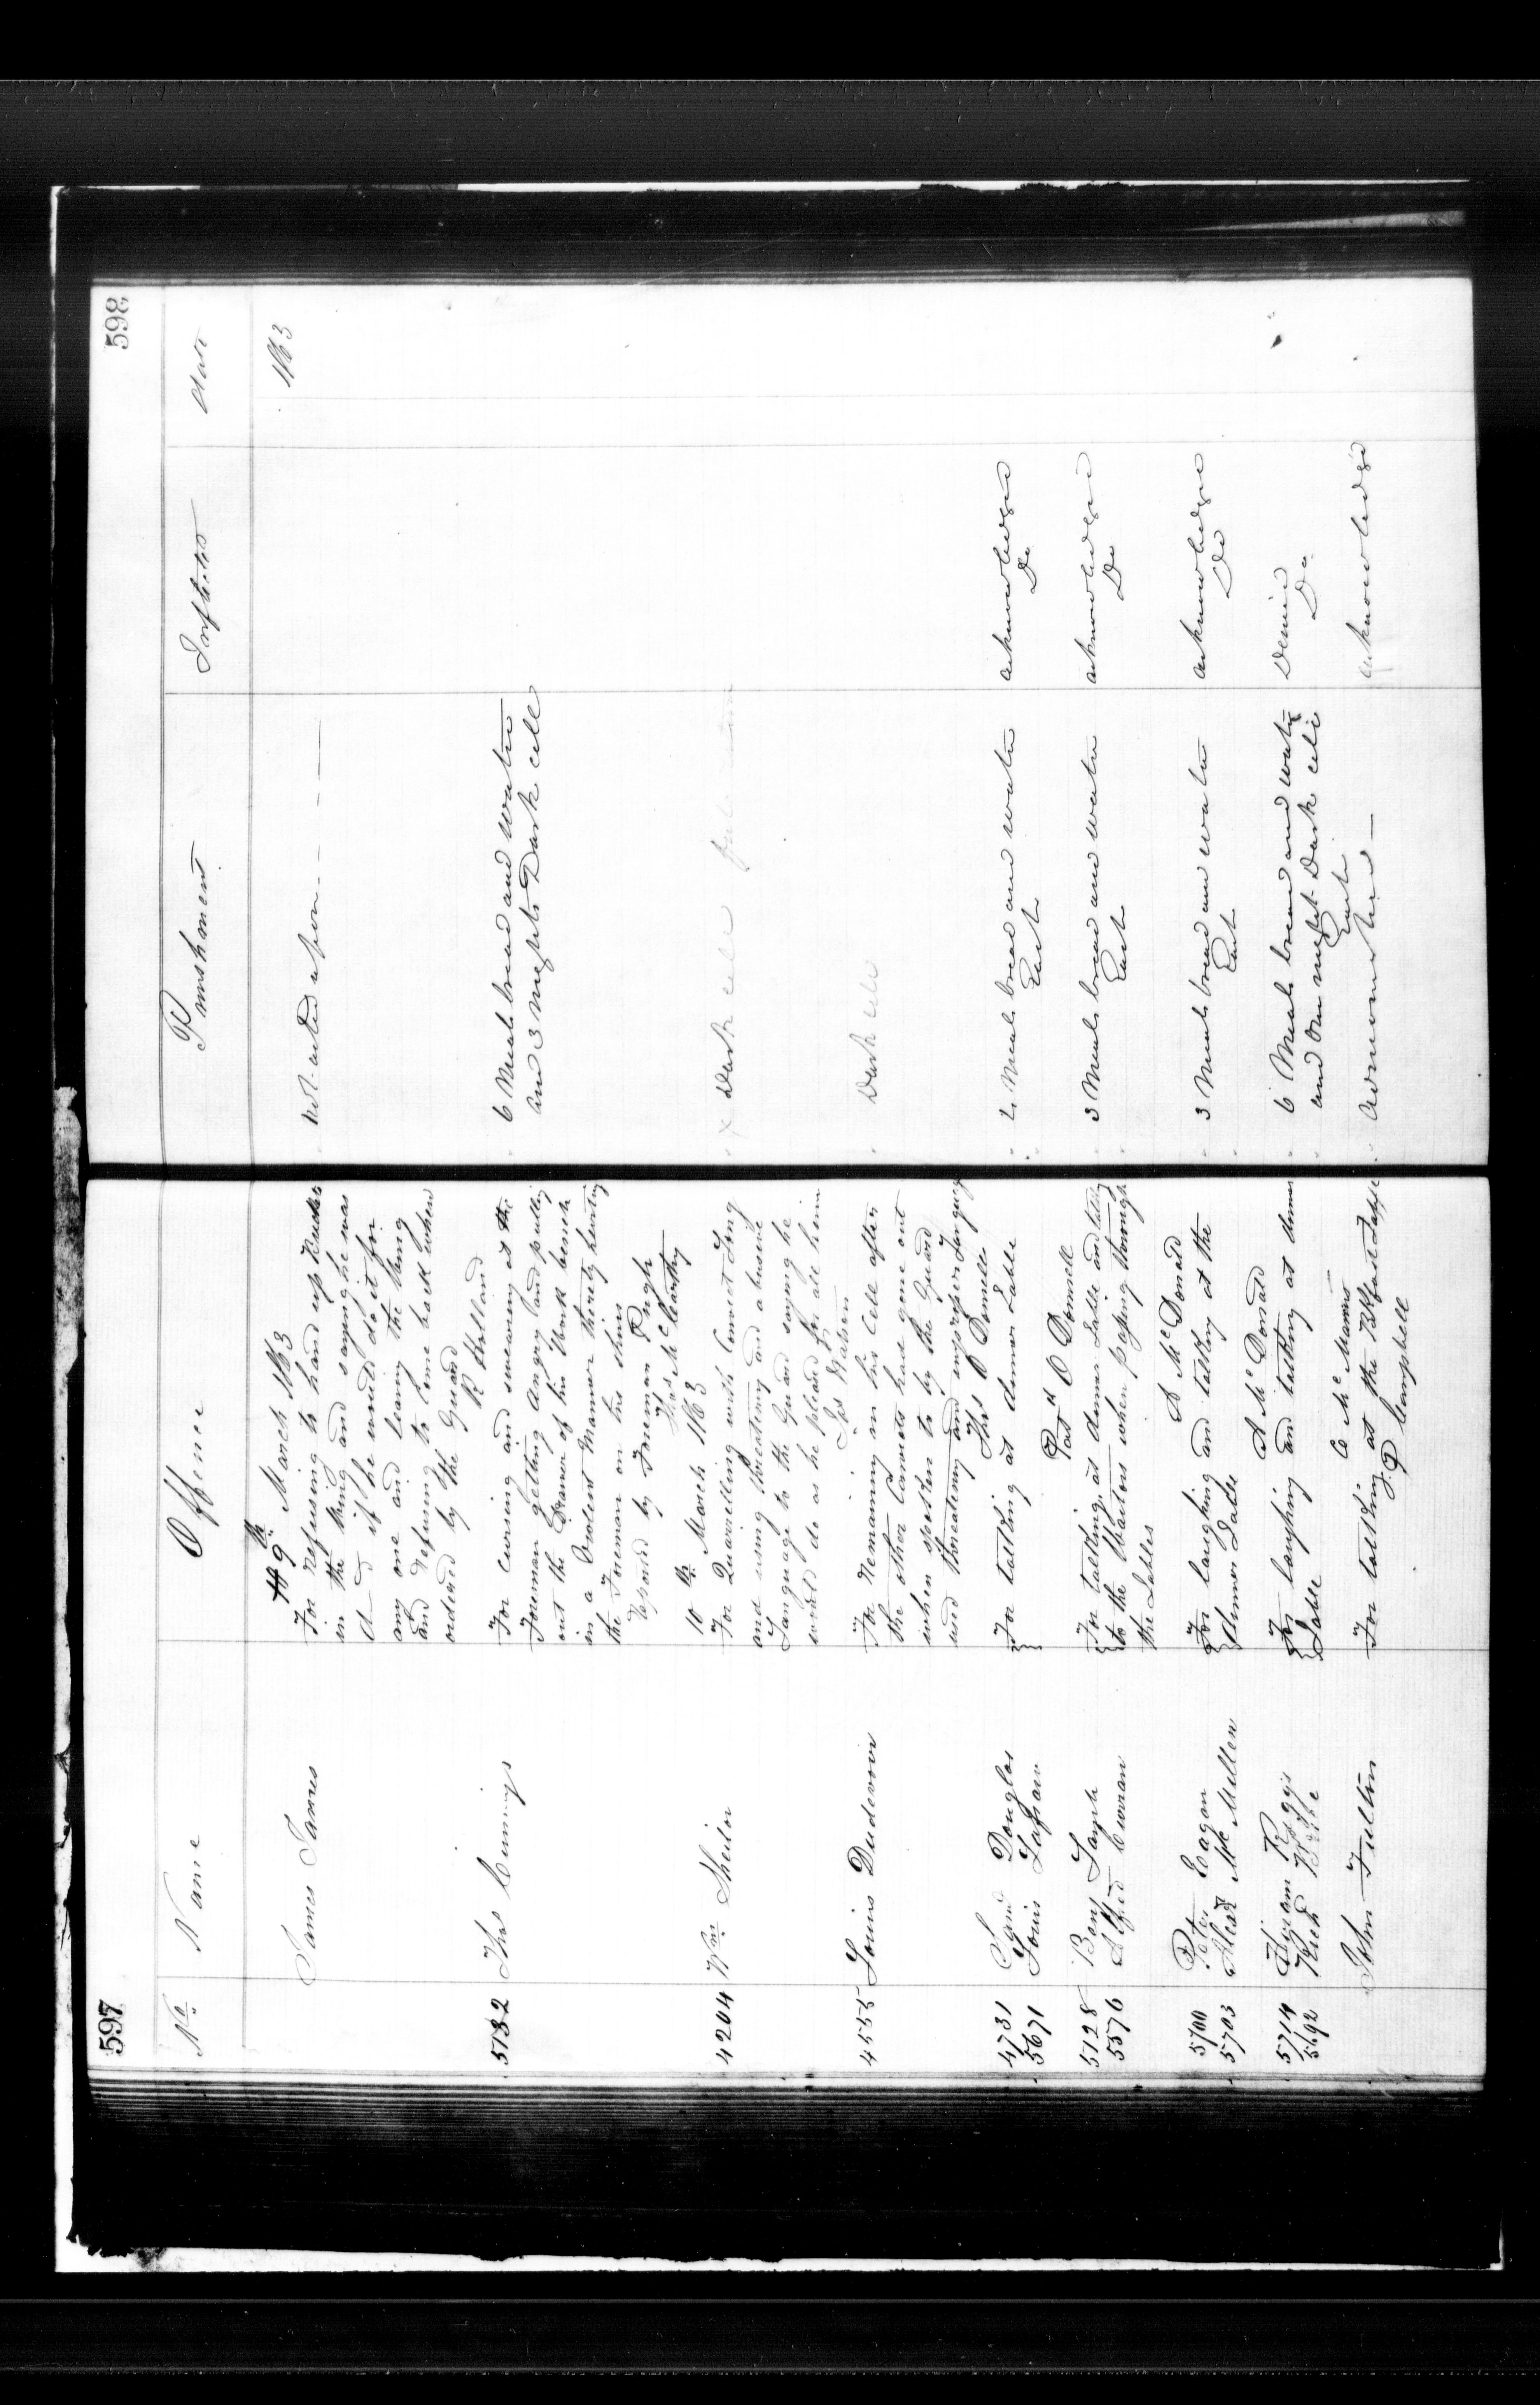 597
No. Name Offence
9th March 1863
James James For refusing to hand up Buckets
in the Wing and saying he was
d—d if he would do it for
any one and leaving the Wing
and Refusing to Come back when
ordered by the Guard
R Holland
5132 Thos Cumings For cursing and swearing at the
Foreman getting Angry and pulling
out the Drawer of his Work bench
in a Violent Manner thereby hurting
the Foreman on the shins
Reported by Foreman Pugh
Thos McCarthy
10th March 1863
4204 Wm Sheilor For Quarrelling with Convict Long
and using threatening and abusive
Language to the Guard saying he
would do as he pleased for all him
Jos Watson
4555 Louis Dudevoir For Remaining in his Cell after
the other Convicts had gone out
when spoken to by the Guard
used threatening and improper Language
Thos O Donnell
4731 Saml Douglas For talking at dinner Table
5671 Louis Lafraw
Patk O Donnell
5128 Benj Lamb For talking at dinner Table and talking
5576 Alfred Curran to the Waiters when passing through
the Tables
A McDonald
5700 Peter Eagan For laughing and talking at the
5703 Alexr McMillen dinner Table
A McDonald
5714 Hiram Riggs For laughing and talking at dinner
5692 Richd Table
C McManus
John Fulton For talking at the Bkfast Table
P Campbell
598
Punishment Inflicted Date
1863
not acted upon
6 Meals bread and water
and 3 nights Dark cell
x Dark cell
Dark cell
2 Meals bread and water acknowledged
Each Do
3 Meals bread and water acknowledged
Each Do
3 Meals bread and water acknowledged
Each Do
6 Meals bread and water Denied
and one night Dark cell Do
Each
Admonished acknowledged